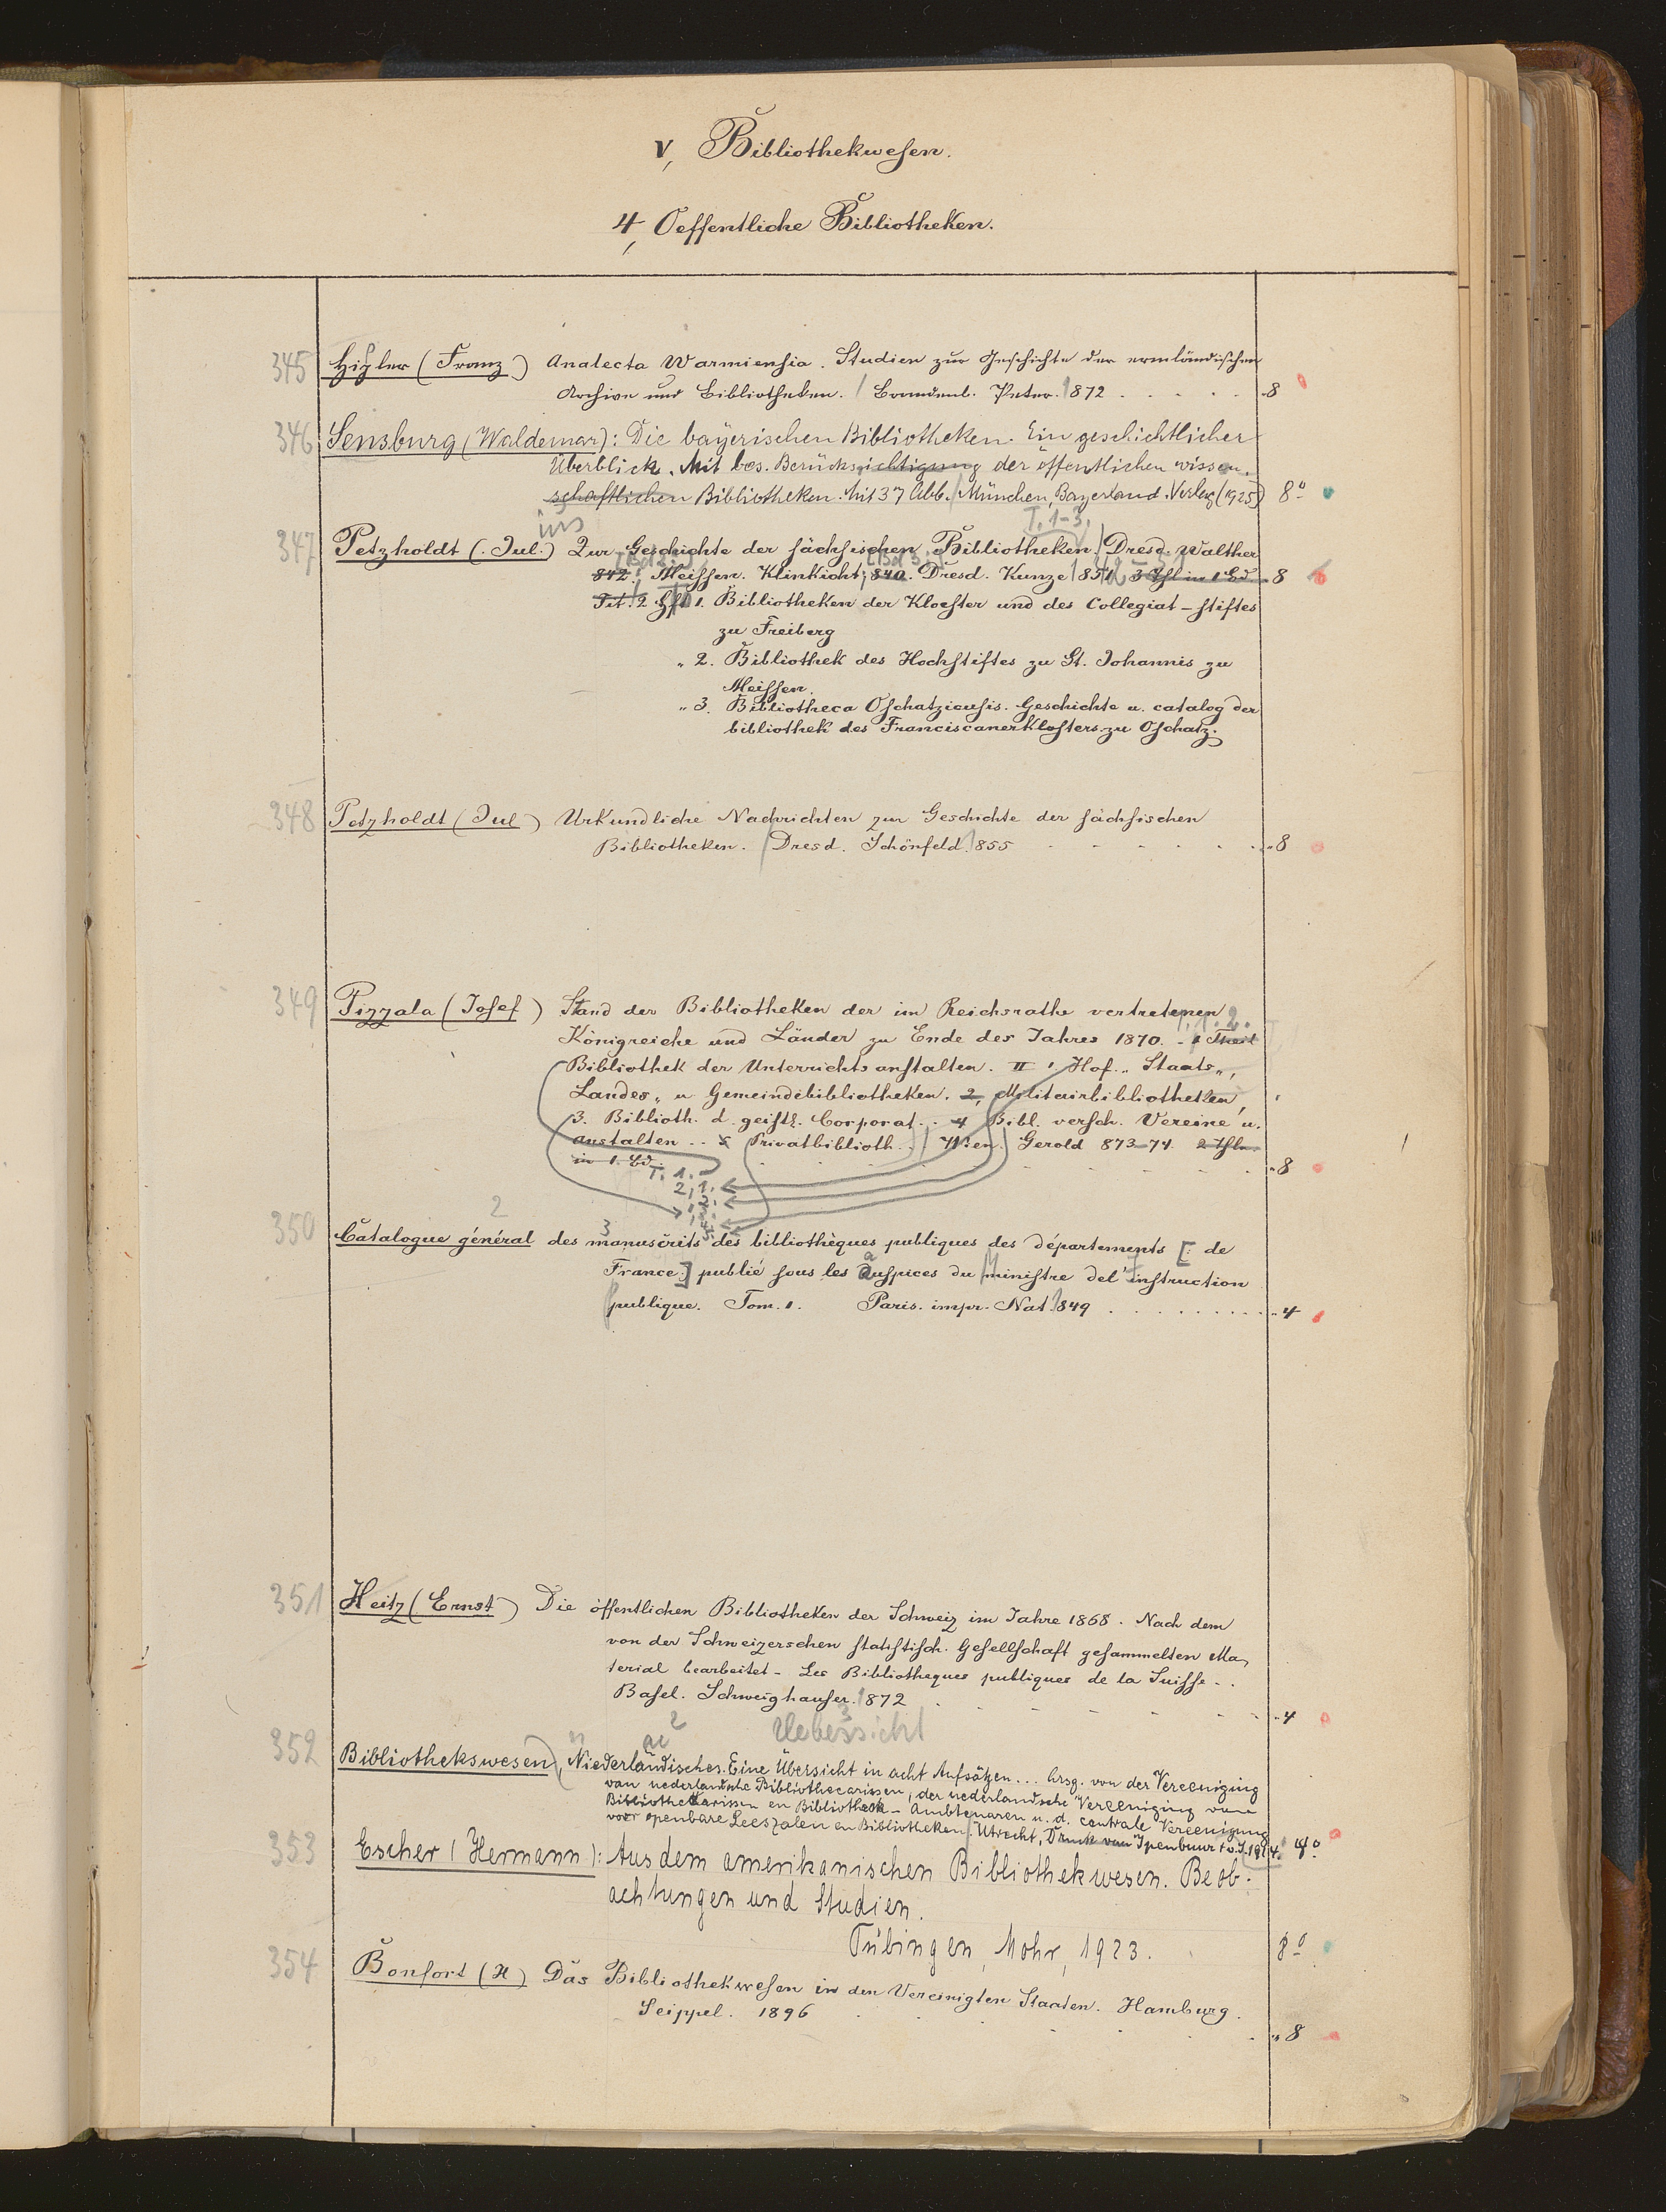 V, Bibliothekwesen.
4, Oeffentliche Bibliotheken.
345 Hipler (Franz) Analecta Warmiensia. Studien zur Geschichte der ermländischen
Archive und Bibliotheken. Braunenb. Peter. 1872 8
346 Sensburg (Waldemar): Die bayerischen Bibliotheken. Ein geschichtlicher
Überblick. Mit bes. Berücksichtigung der öffentlichen wissen-
schaftlichen Bibliotheken. Mit 37 Abb. München, Bayerland-Verlag (1925) 8°
ins T. 1-3.
347 Petzholdt (Jul.) Zur Geschichte der sächsischen Bibliotheken. Dresd. Walther
842; Meissen. Klinkicht; 840. Dresd. Kunze 851 3 Thl in 1 Bd 8
Tit. 2 Hft 1. Bibliotheken der Kloester und des Collegiat-stiftes
zu Freiberg
„ 2. Bibliothek des Hochstiftes zu St. Johannis zu
Meissen.
„ 3. Bibliotheca Oschatziensis. Geschichte u. catalog der
bibliothek des Franciscanerklosters zu Oschatz.
348 Petzholdt (Jul) Urkundliche Nachrichten zur Geschichte der sächsischen
Bibliotheken. Dresd. Schönfeld. 1855 8
349 Pizzala (Josef) Stand der Bibliotheken der im Reichsrathe vertretenen
Königreiche und Länder zu Ende des Jahres 1870. - 1 Theil
Bibliothek der Unterrichtsanstalten. II 1 Hof„ Staats„,
Landes„ u Gemeindebibliotheken. 2, Militairbibliotheken,
3. Biblioth. d. geistl. Corporat.. 4 Bibl. versch. Vereine u.
anstalten .. 5 Privatbiblioth.. Wien. Gerold 873-74. 2 Thle
in 1. Bd. 8
T. 1.
2,1.
,2.
,3.
,4.
5.
2 3
350 Catalogue général des manuscrits des bibliothèques publiques des départements [: de
France:] publié sous les auspices du ministre del' instruction
publique. Tom. 1. Paris. impr. Nat. 1849 4
351 Heitz (Ernst) Die öffentlichen Bibliotheken der Schweiz im Jahre 1868. Nach dem
von der Schweizerschen statistisch. Gesellschaft gesammelten Ma,
terial bearbeitet - Les Bibliotheques publiques de la Suisse..
Basel. Schweighauser. 1872 4
2 Uebersicht 3
352 Bibliothekswesen, Niederländisches. Eine Übersicht in acht Aufsätzen... hrsg. von der Vereeniging
van nederlandsche Bibliothecarissen, der nederlandsche Vereeniging van
Bibliothekarissen en Bibliotheek-Ambtenaren u. d. centrale Vereenigung
voor openbare Leeszalen en Bibliotheken. Utrecht, Druck van Ipenbuur + v. S. 1914. 4°
353 Escher (Hermann): Aus dem amerikanischen Bibliothekwesen. Beob-
achtungen und Studien.
Tübingen, Mohr, 1923. 8°
354 Bonfort (H) Das Bibliothekwesen in den Vereinigten Staaten. Hamburg.
Seippel. 1896 8